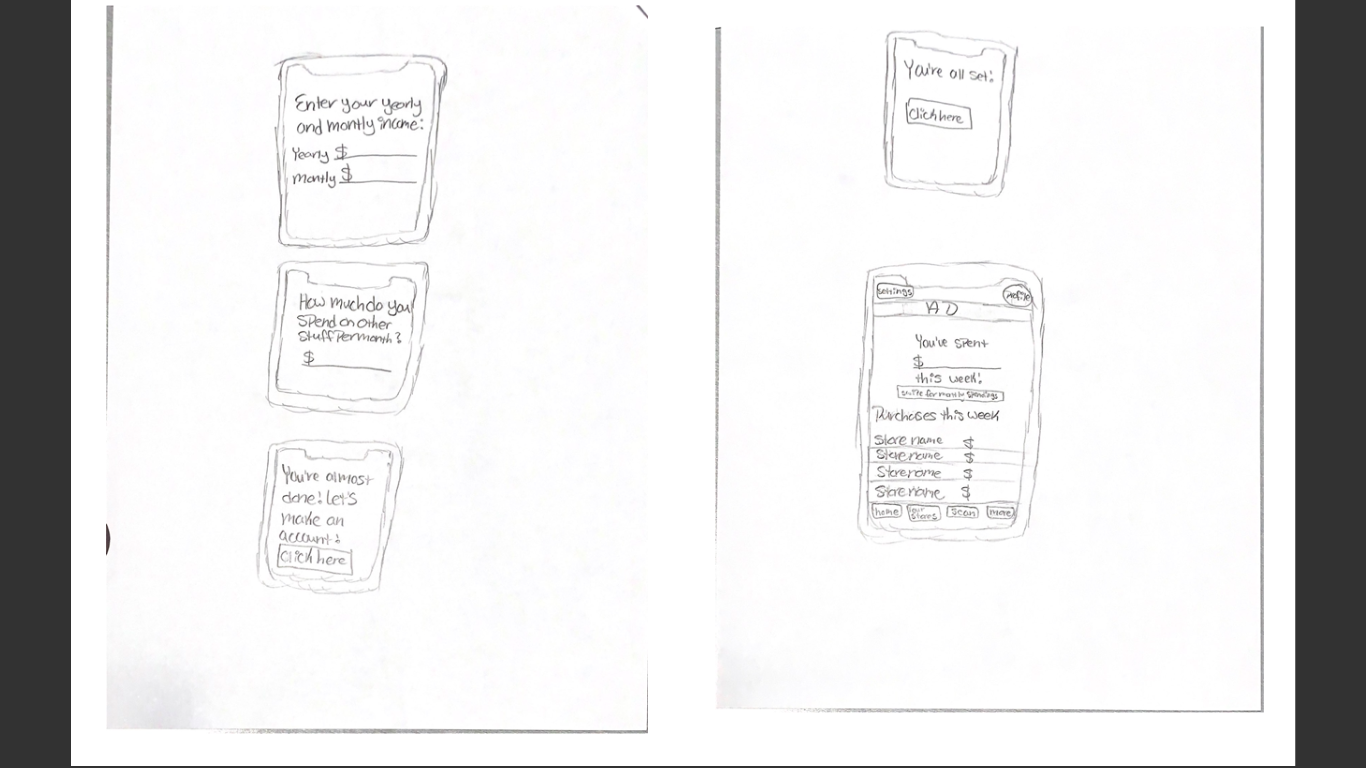 Enter your yearly
and montly income:
Yearly $
montly $
How much do you
spend on other
stuff per month?
$
You're almost
done! Let's
make an
account!
Click here
You're all set!
Click here
settings
Profile
AD
You've spent
$
this week!
for montly spendings
Purchases this week
Store name $
Store name $
Store name $
Store name $
home
stores
Scan
more